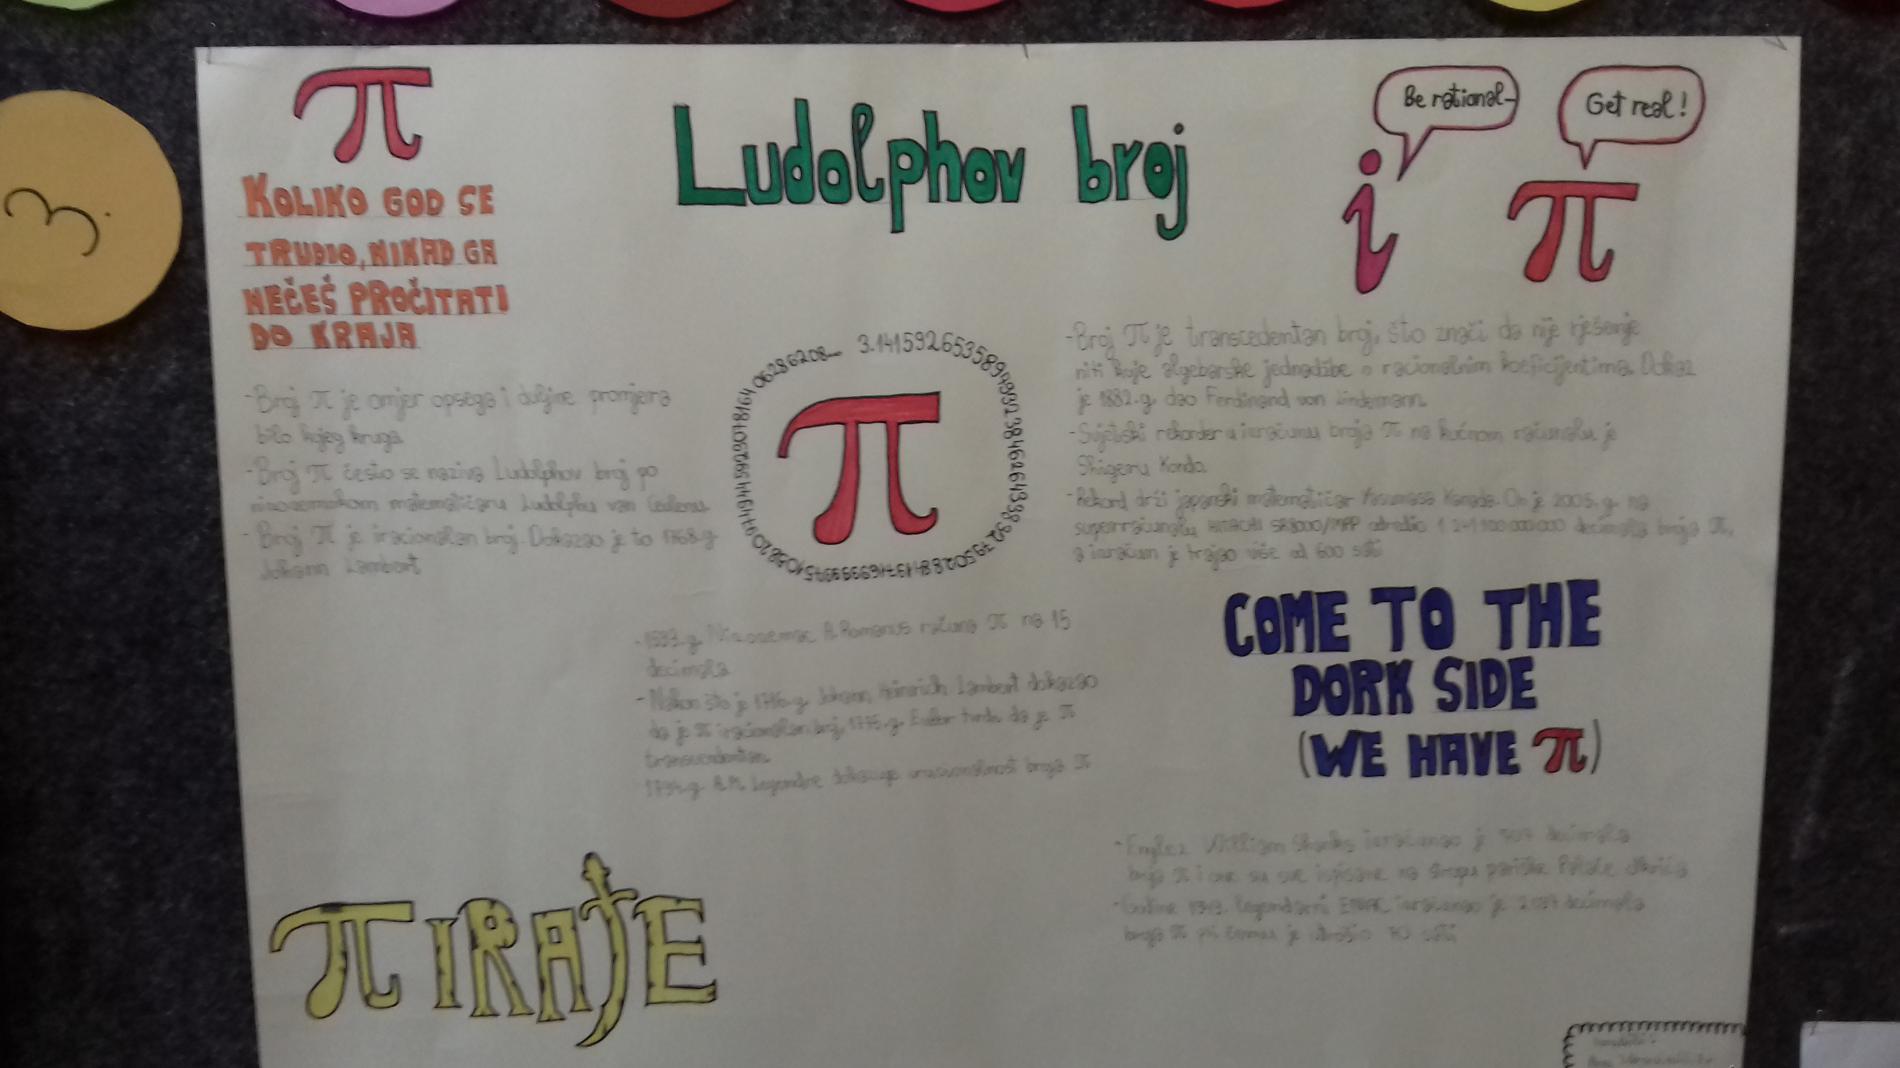 3.
π
KOLIKO GOD SE
TRUDIO, NIKAD GA
NEĆEŠ PROČITATI
DO KRAJA
- Broj π je omjer opsega i duljine promjera
bilo kojeg kruga
- Broj π često se naziva Ludolphov broj po
nizozemskom matematičaru Ludolphu van
- Broj π je iracionalan broj. Dokazao je to 1768.g.
Johann Lambert
Ludolphov broj
Be rational
Get real!
i π
3.14159265358979323846264338
π
- 1593.g. Nizozemac A. Romanus računa π na 15
decimala
- Nakon što je Johann Heinrich Lambert dokazao
da je π iracionalan broj, Euler tvrdi da je π
1794.g. A.M. Legendre dokazuje iracionalnost broja π
- Broj π je transcedentan broj, što znači da nije rješenje
niti koje algebarske jednadžbe s racionalnim koeficijentima. Dokaz
je 1882.g. dao Ferdinand von Lindemann.
- Svjetski rekorder u izračunu broja π na kućnom računalu je
Shigeru Kondo
- Rekord drži japanski matematičar Yasumasa Kanada. On je 2005.g. na
superračunalu HITACHI SR8000/MPP odredio 1 241 100 000 000 decimala broja π,
a izračun je trajao više od 600 sati
COME TO THE
DORK SIDE
(WE HAVE π)
- Englez William Shanks izračunao je 707 decimala
broja π i one su sve ispisane na stropu pariške
- Godine legendarni ENIAC izračunao je decimala
broja π pri čemu je 70 sati
πIRAJE